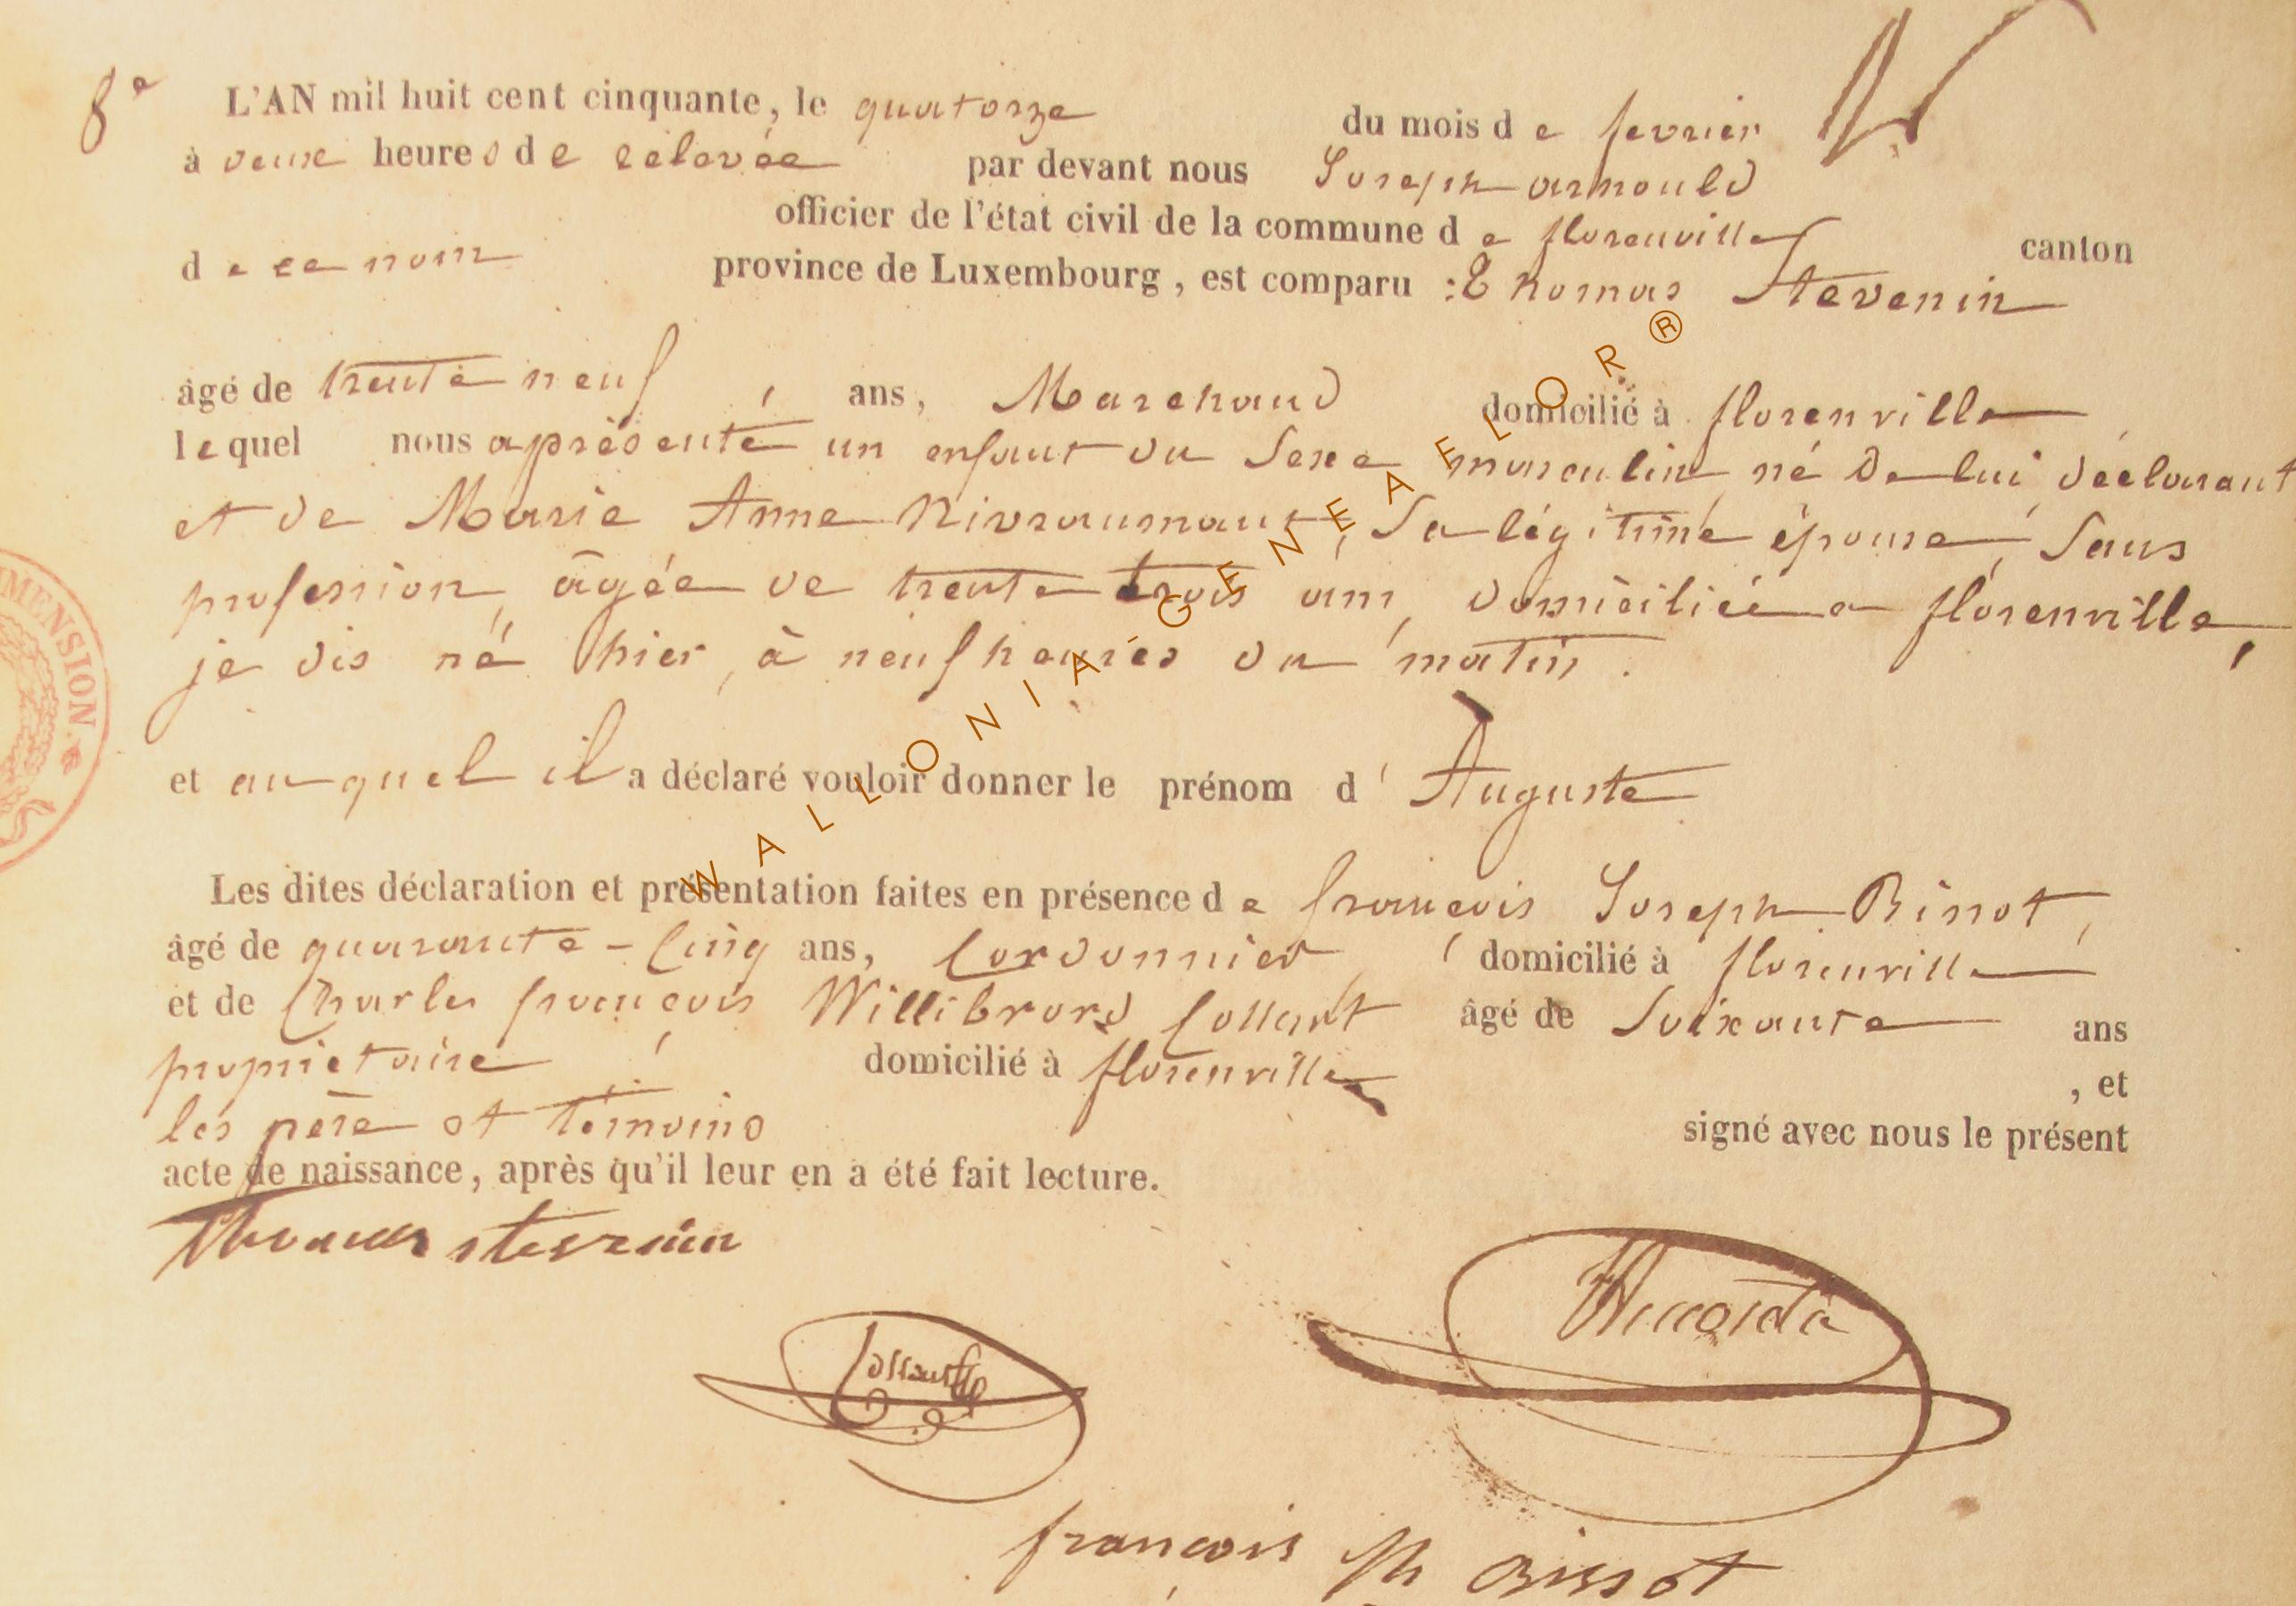 8e L'AN mil huit cent cinquante, le quatorze du mois de fevrier
à deux heures de relevée par devant nous Joseph arnould
officier de l'état civil de la commune de florenville canton
de ce nom province de Luxembourg, est comparu : Thomas Stevenin
âgé de trente neuf, ans, Marchand domicilié à florenville
lequel nous a présenté un enfant du Sexe masculin, né de lui déclarant
et de Marie Anne Nivraumont, Sa légitime épouse, Sans
profession, âgée de trente trois ans, domiciliée a florenville,
je dis né hier, à neuf heures du matin.
et auquel il a déclaré vouloir donner le prénom d'Auguste
Les dites déclaration et présentation faites en présence de françois Joseph Bissot,
âgé de quarante-Cinq ans, Cordonnier, domicilié à florenville
et de Charles françois Willibrord Collart âgé de Soixante ans
propriétaire, domicilié à florenville, et
les père et témoins signé avec nous le présent
acte de naissance, après qu'il leur en a été fait lecture.
Thomas stevenin
Collart
françois Jh Bissot
MENSION.
WALLONIA-GENEAELOR®